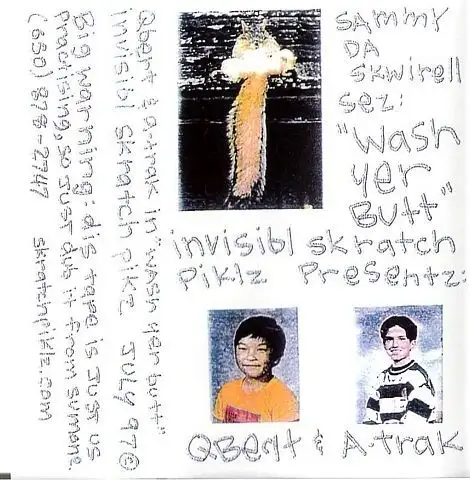 SAmmy
DA
Skwirell
Sez:
"Wash
yer
Butt"
invisibl skratch
Piklz Presentz:
QBert & A trak
Qbert & a-trak in "wash yer butt"
invisibl skratch piklz July 97 ©
Big warning: dis tape is just us
practising, so just dub it from sumone.
(650) 878-2747 skratchpiklz.com